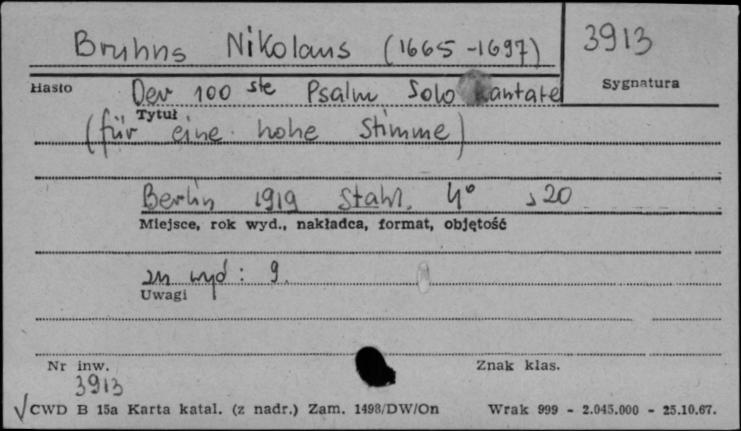 Bruhns Nikolaus (1665-1697)
3913
Hasło
Sygnatura
Der 100 ste Psalm Solo Kantate
Tytuł
(für eine hohe Stimme)
Berlin 1919 Stahl. 4° s 20
Miejsce, rok wyd., nakładca, format, objętość
zn wyd: 9.
Uwagi
Nr inw.
Znak klas.
3913
√ CWD B 15a Karta katal. (z nadr.) Zam. 1498/DW/On
Wrak 999 - 2.045.000 - 25.10.67.